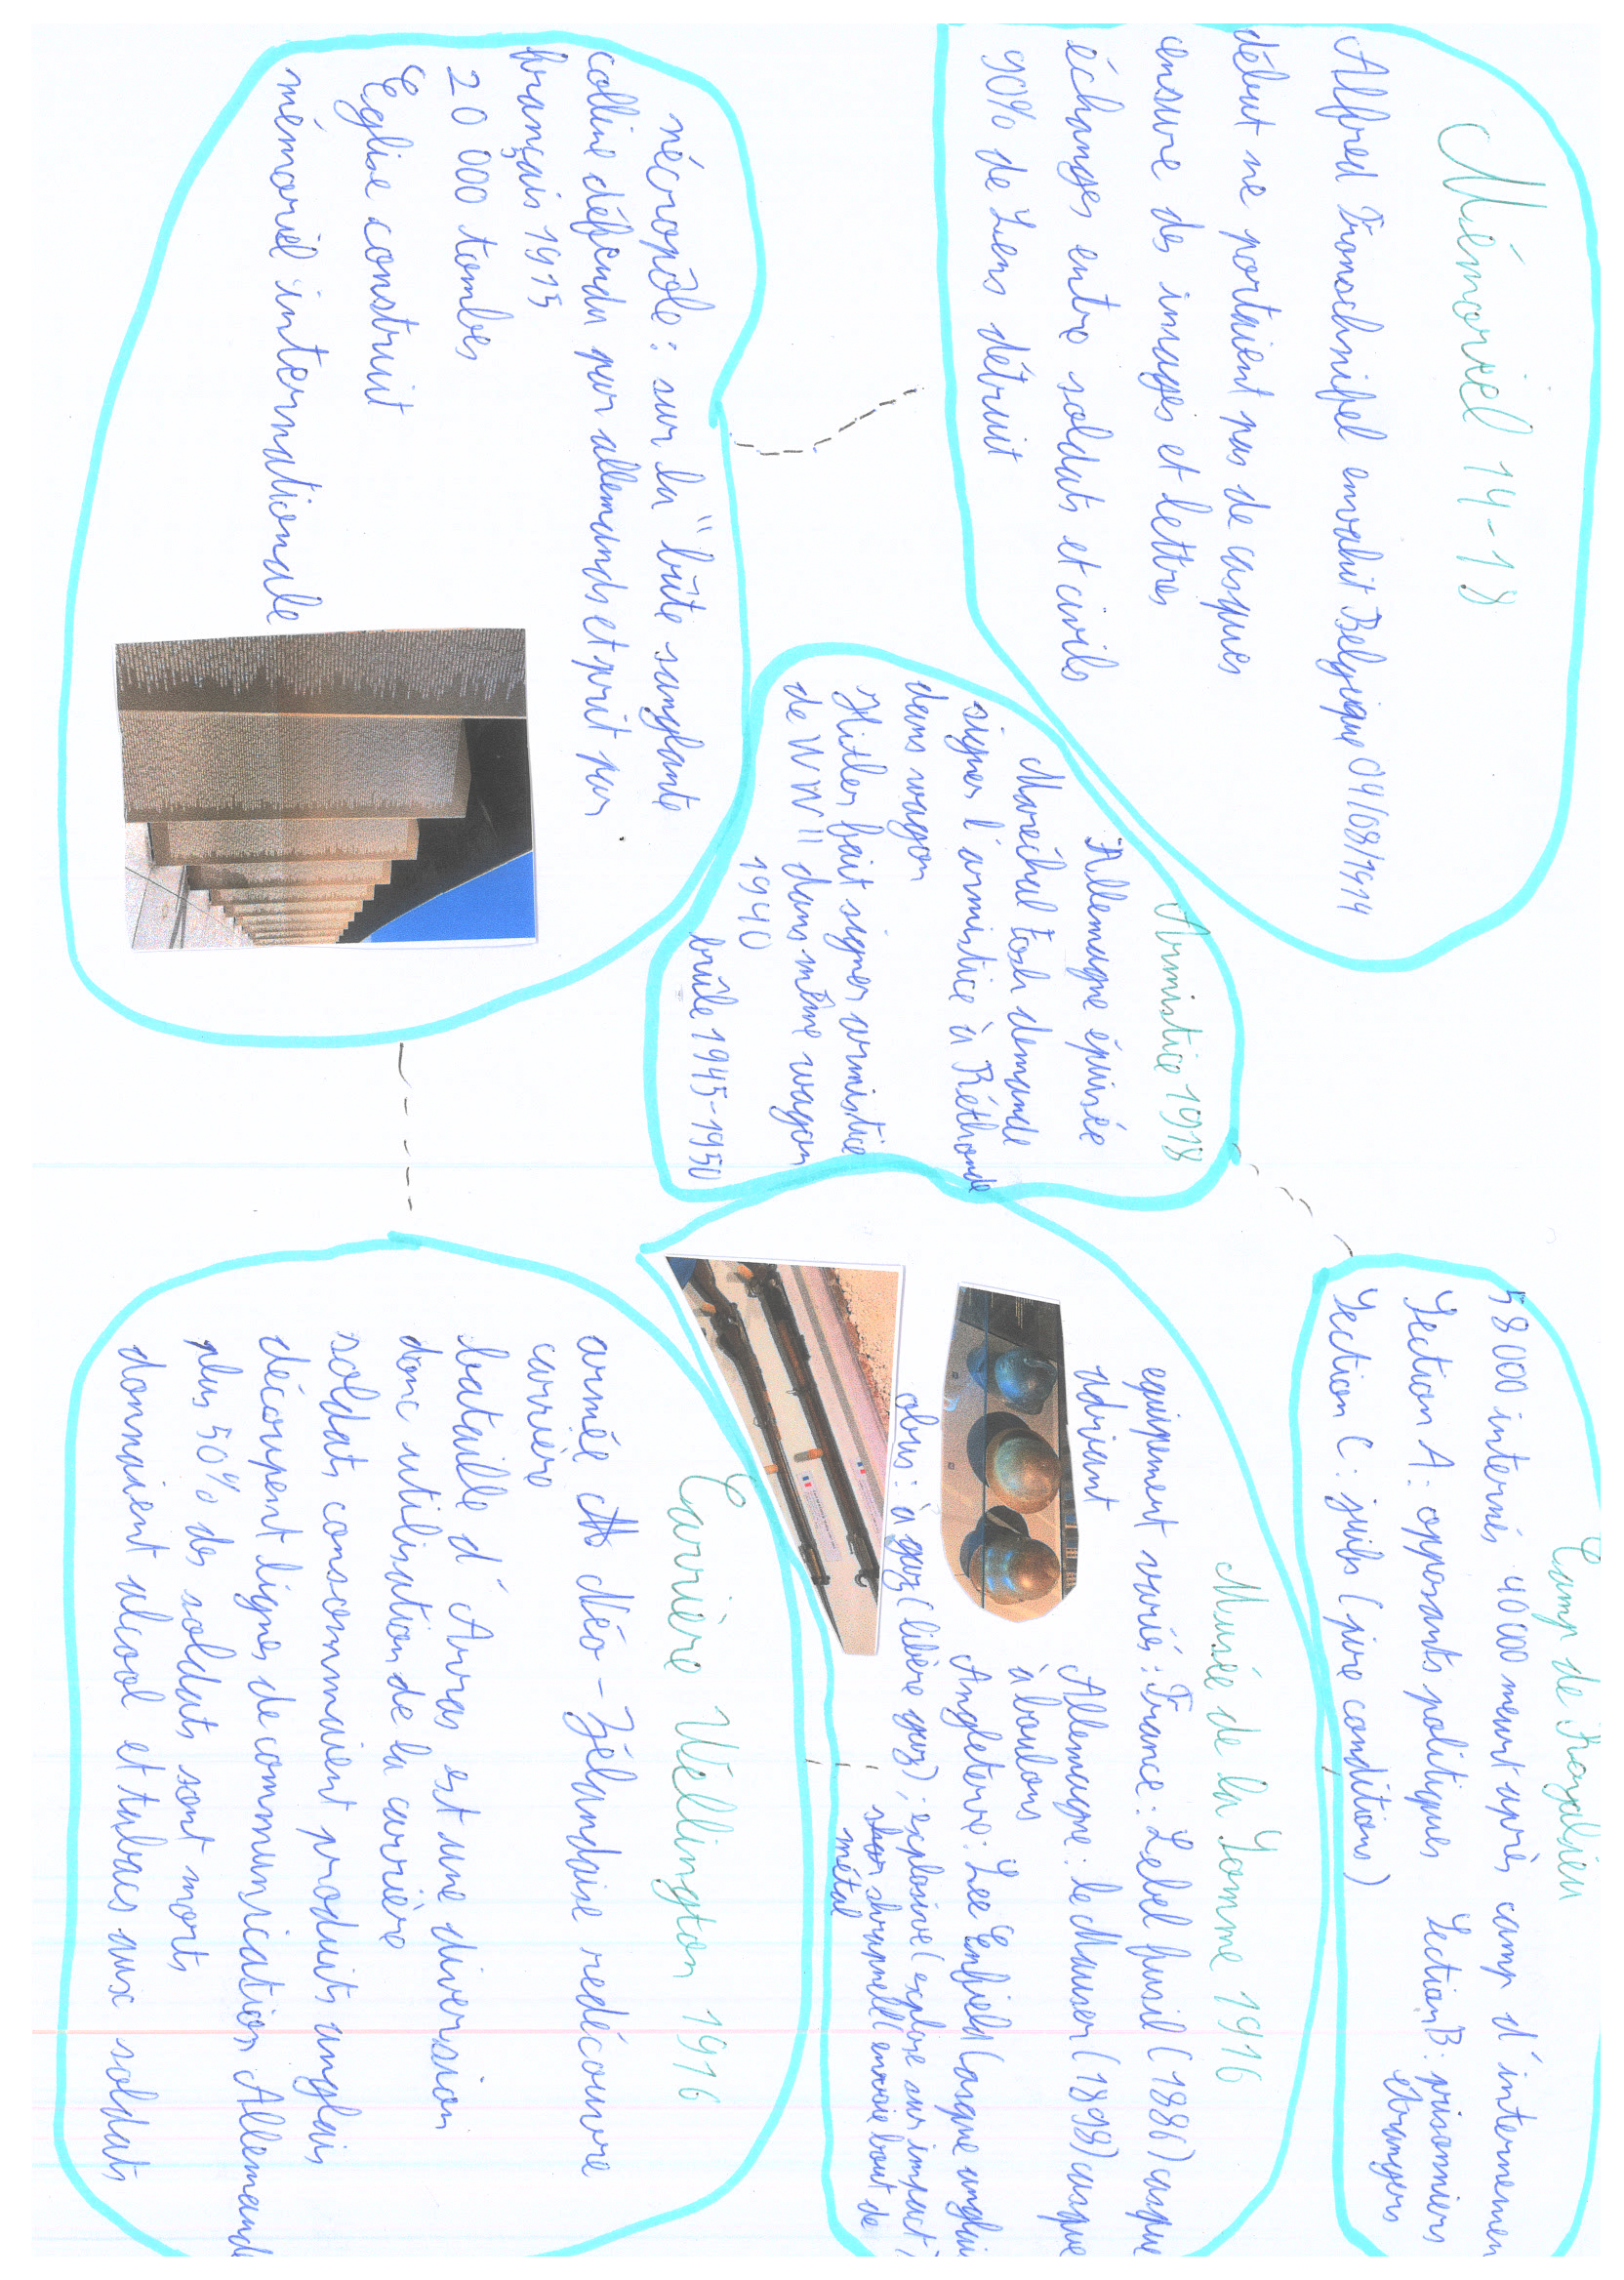 Mémoriel 14-18
Alfred Transchnifel envahit Belgique 04/08/1914
début ne portaient pas de casques
censure des images et lettres
échanges entre soldats et civils
90% de Lens détruit
nécropôle : sur la "bûte sanglante
colline défendu par allemands et prit par
français 1915
20 000 tombes
Eglise construit
mémoriel internationale
Armistice 1918
Allemagne épuisée
Maréchal Foch demande
signer l'armistice à Réthonde
dans wagon
Hitler fait signer armistice
de WWII dans même wagon
1940
brûle 1945-1950
Camp de Royalieu
58 000 internés 40 000 meurt après camp d'internemen
Section A : opposants politiques Section B : prisonniers
étrangers
Section C : juifs (pire conditions)
Musée de la Somme 1916
equipement variés : France : Lebel fusil (1886) casque
adriant
Allemagne : le Mauser (1898) casque
à boulons
Angleterre : Lee Enfield (casque anglai
obus : à gaz (libère gaz) ; explosive (explose sur impact)
shrapnell envoie bout de
métal
Carrière Wellington 1916
armée Néo-Zélandaise redécouvre
carrière
bataille d'Arras est une diversion
donc utilisation de la carrière
soldats consommaient produits anglais
découpent lignes de communication Allemand
plus 50% des soldats sont morts
donnaient alcool et tabacs aux soldats